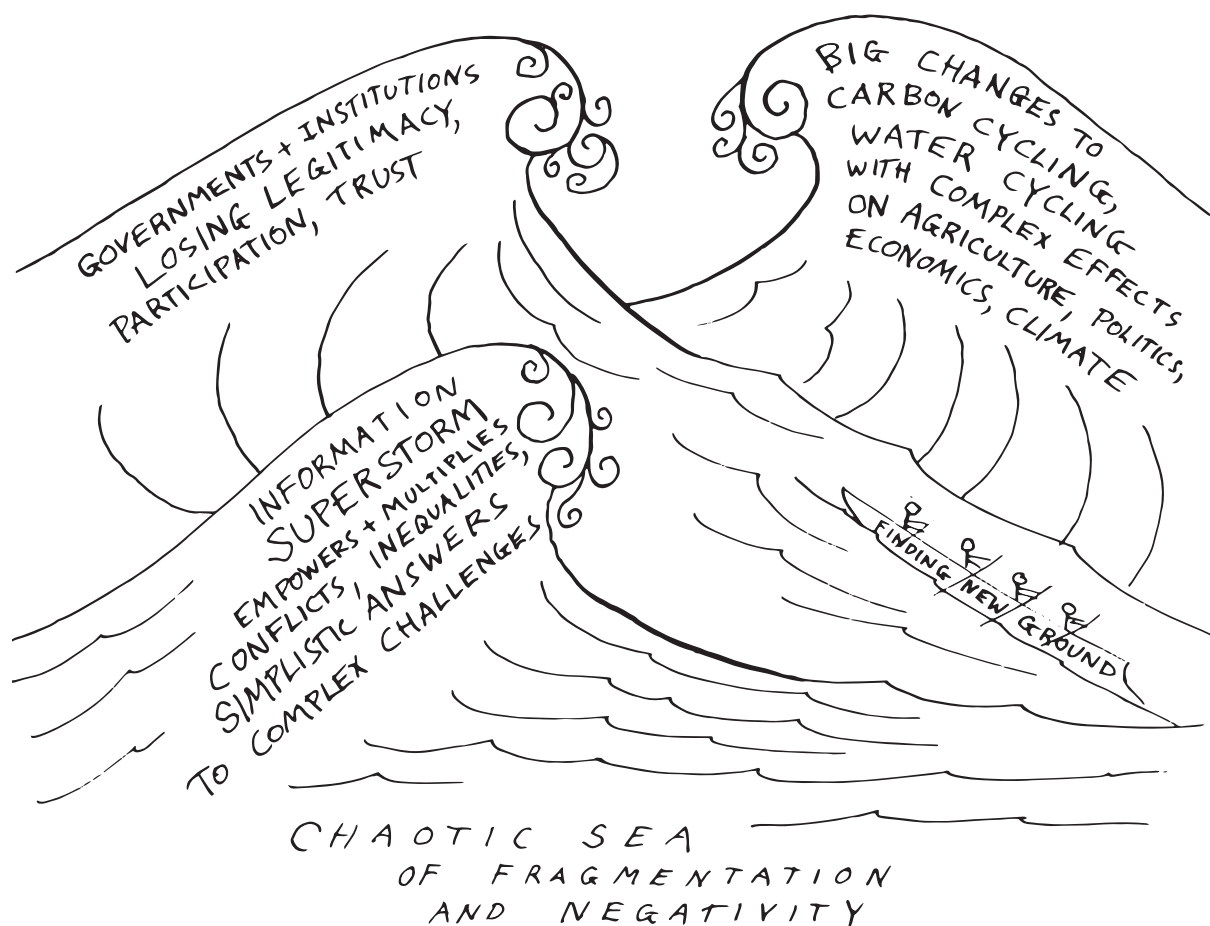 GOVERNMENTS + INSTITUTIONS
LOSING LEGITIMACY,
PARTICIPATION, TRUST
BIG CHANGES TO
CARBON CYCLING,
WATER CYCLING
WITH COMPLEX EFFECTS
ON AGRICULTURE, POLITICS,
ECONOMICS, CLIMATE
INFORMATION
SUPERSTORM
EMPOWERS + MULTIPLIES
CONFLICTS, INEQUALITIES,
SIMPLISTIC ANSWERS
TO COMPLEX CHALLENGES
FINDING NEW GROUND
CHAOTIC SEA
OF FRAGMENTATION
AND NEGATIVITY